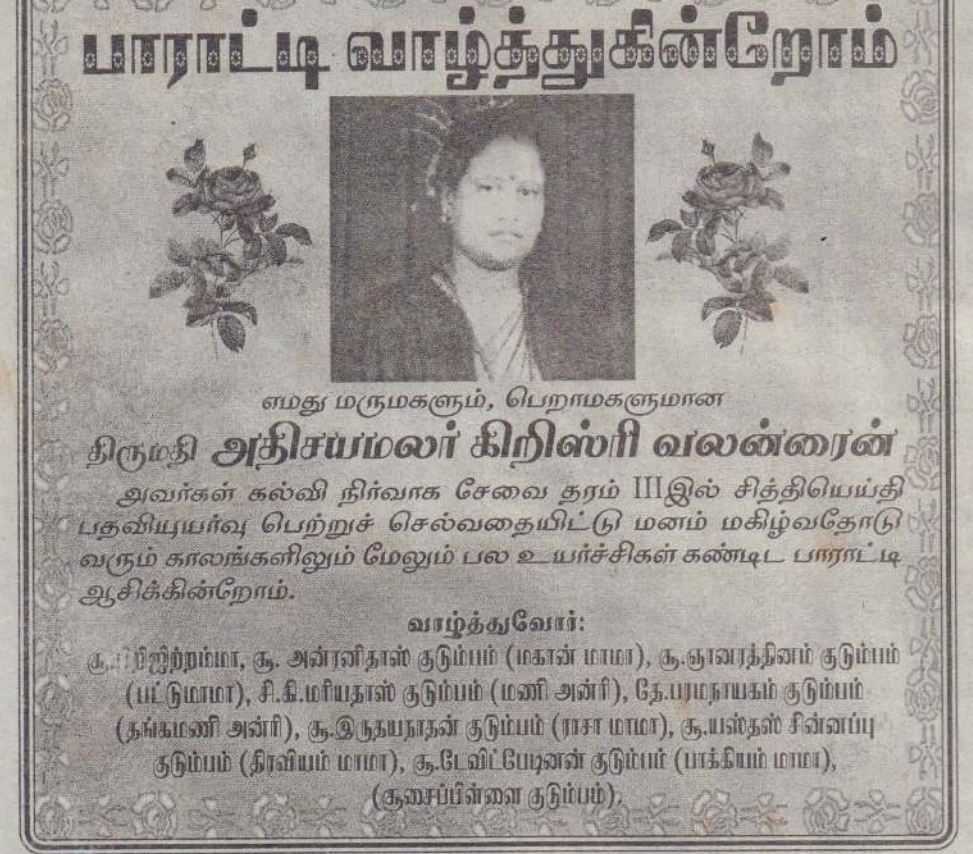 பாராட்டி வாழ்த்துகின்றோம்
எமது மருமகளும், பெறாமகளுமான
திருமதி அதிசயமலர் கிறிஸ்ரி வலன்ரைன்
அவர்கள் கல்வி நிர்வாக சேவை தரம் IIIஇல் சித்தியெய்தி
பதவியுயர்வு பெற்றுச் செல்வதையிட்டு மனம் மகிழ்வதோடு
வரும் காலங்களிலும் மேலும் பல உயர்ச்சிகள் கண்டிட பாராட்டி
ஆசிக்கின்றோம்.
வாழ்த்துவோர்:
சூ. அன்ரனிதாஸ் குடும்பம் (மகான் மாமா), சூ.ஞானரத்தினம் குடும்பம்
(பட்டுமாமா), சி.கி.மரியதாஸ் குடும்பம் (மணி அன்ரி), தே.பரமநாயகம் குடும்பம்
(தங்கமணி அன்ரி), சூ.இருதயநாதன் குடும்பம் (ராசா மாமா), சூ.யஸ்தஸ் சின்னப்பு
குடும்பம் (திரவியம் மாமா), சூ.டேவிட்பேடினன் குடும்பம் (பாக்கியம் மாமா),
(சூசைப்பிள்ளை குடும்பம்).